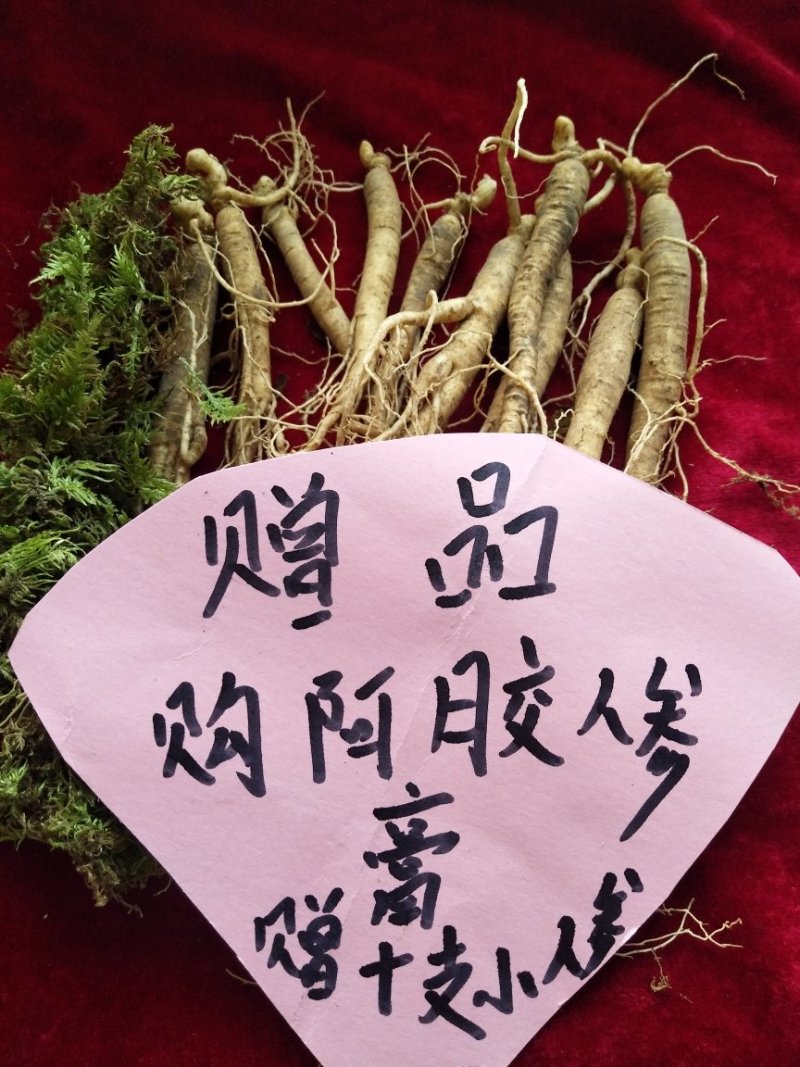 赠品
购阿胶人参
膏
赠十支小人参